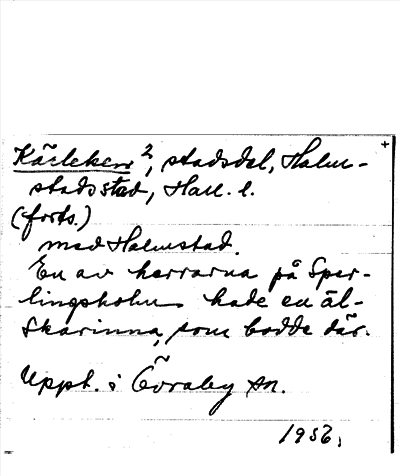 Kärleken 2, stadsdel, Halm- +
stads stad, Hall. l.
(forts.)
med Halmstad.
En av herrarna på Sper-
lingsholm hade en äl-
skarinna, som bodde där.
Uppt. i Övraby sn.
1956.